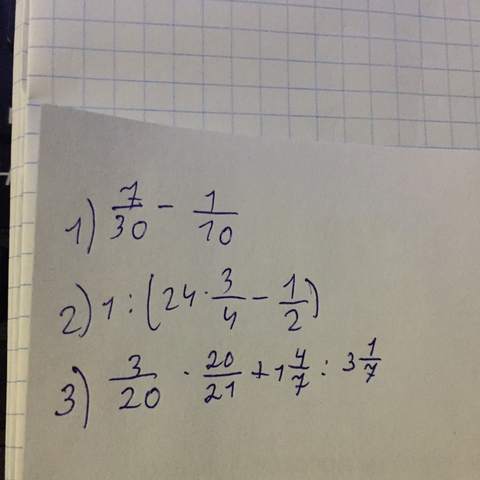 1) 7/30 - 1/10
2) 1 : (24 · 3/4 - 1/2)
3) 3/20 · 20/21 + 1 4/7 : 3 1/7